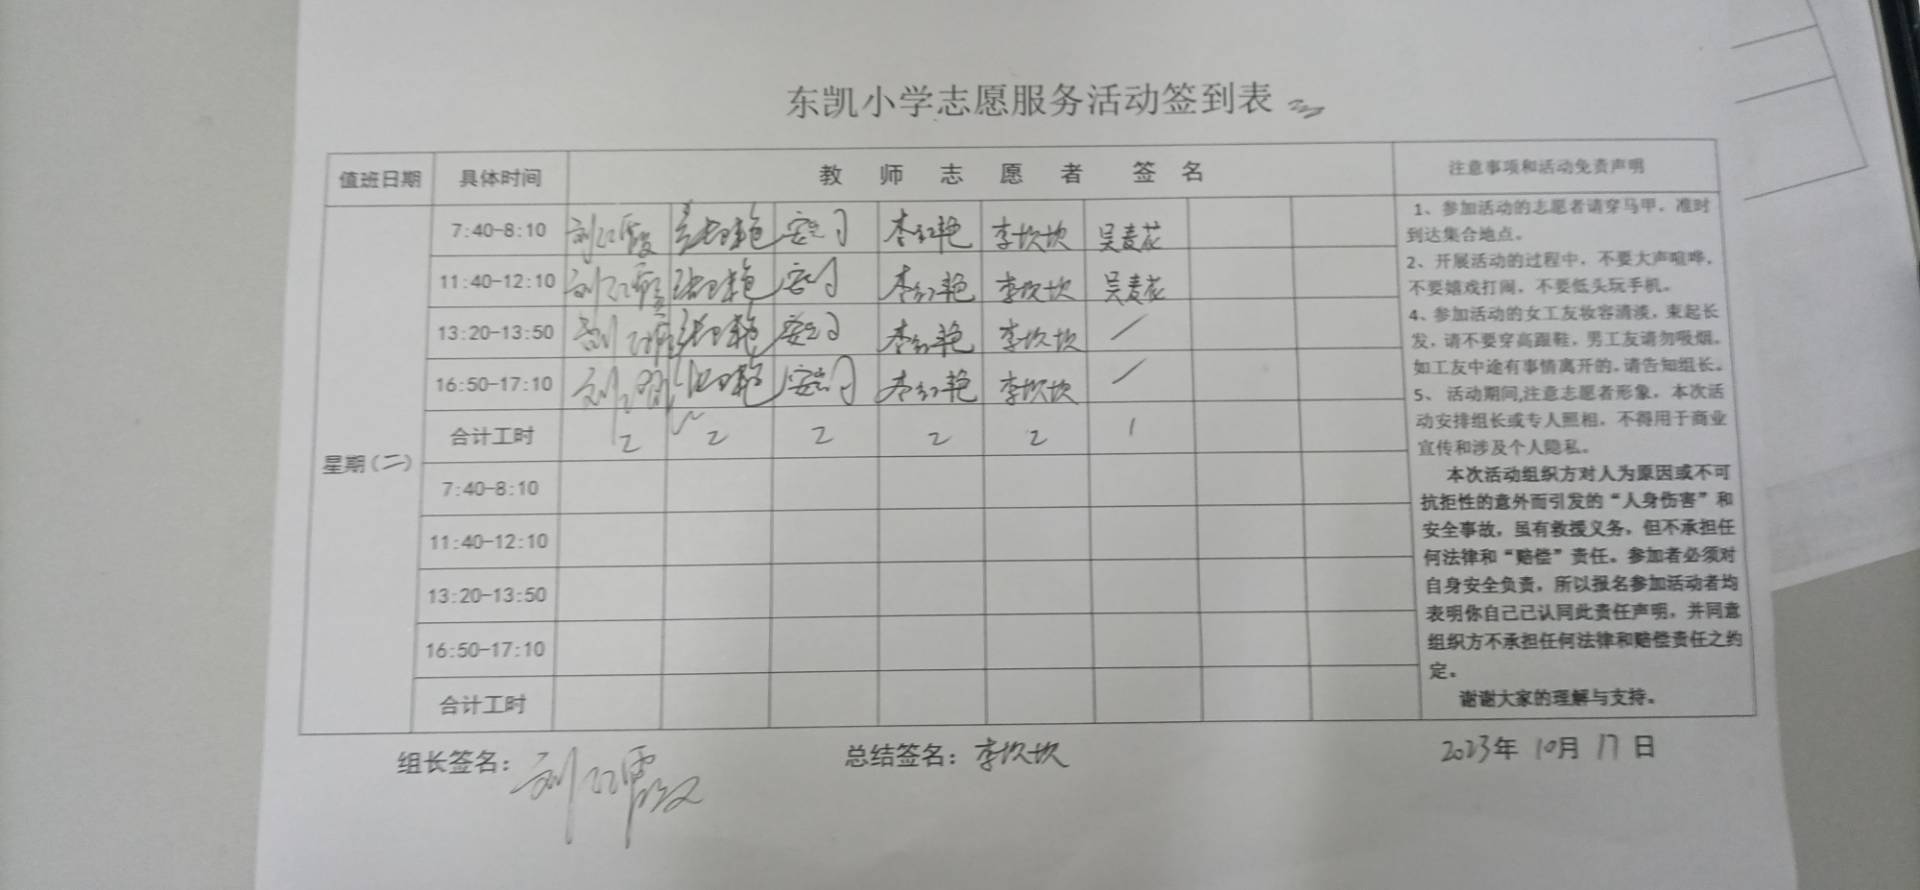 东凯小学志愿服务活动签到表
值班日期 具体时间 教师志愿者签名 注意事项和活动免责声明
星期(二)
7:40-8:10 刘红霞 李红艳 李坎坎 吴麦花
11:40-12:10 刘红霞 李红艳 李坎坎 吴麦花
13:20-13:50 李红艳 李坎坎 /
16:50-17:10 李红艳 李坎坎 /
合计工时 2 2 2 2 2 1
7:40-8:10
11:40-12:10
13:20-13:50
16:50-17:10
合计工时
1、参加活动的志愿者请穿马甲，准时
到达集合地点。
2、开展活动的过程中，不要大声喧哗，
不要嬉戏打闹，不要低头玩手机。
4、参加活动的女工友妆容清淡，束起长
发，请不要穿高跟鞋，男工友请勿吸烟，
如工友中途有事情离开的，请告知组长。
5、 活动期间,注意志愿者形象，本次活
动安排组长或专人照相，不得用于商业
宣传和涉及个人隐私。
本次活动组织方对人为原因或不可
抗拒性的意外而引发的“人身伤害”和
安全事故，虽有救援义务，但不承担任
何法律和“赔偿”责任。参加者必须对
自身安全负责，所以报名参加活动者均
表明你自己已认同此责任声明，并同意
组织方不承担任何法律和赔偿责任之约
定。
谢谢大家的理解与支持。
组长签名：刘红霞 总结签名：李坎坎 2023年 10月 17 日